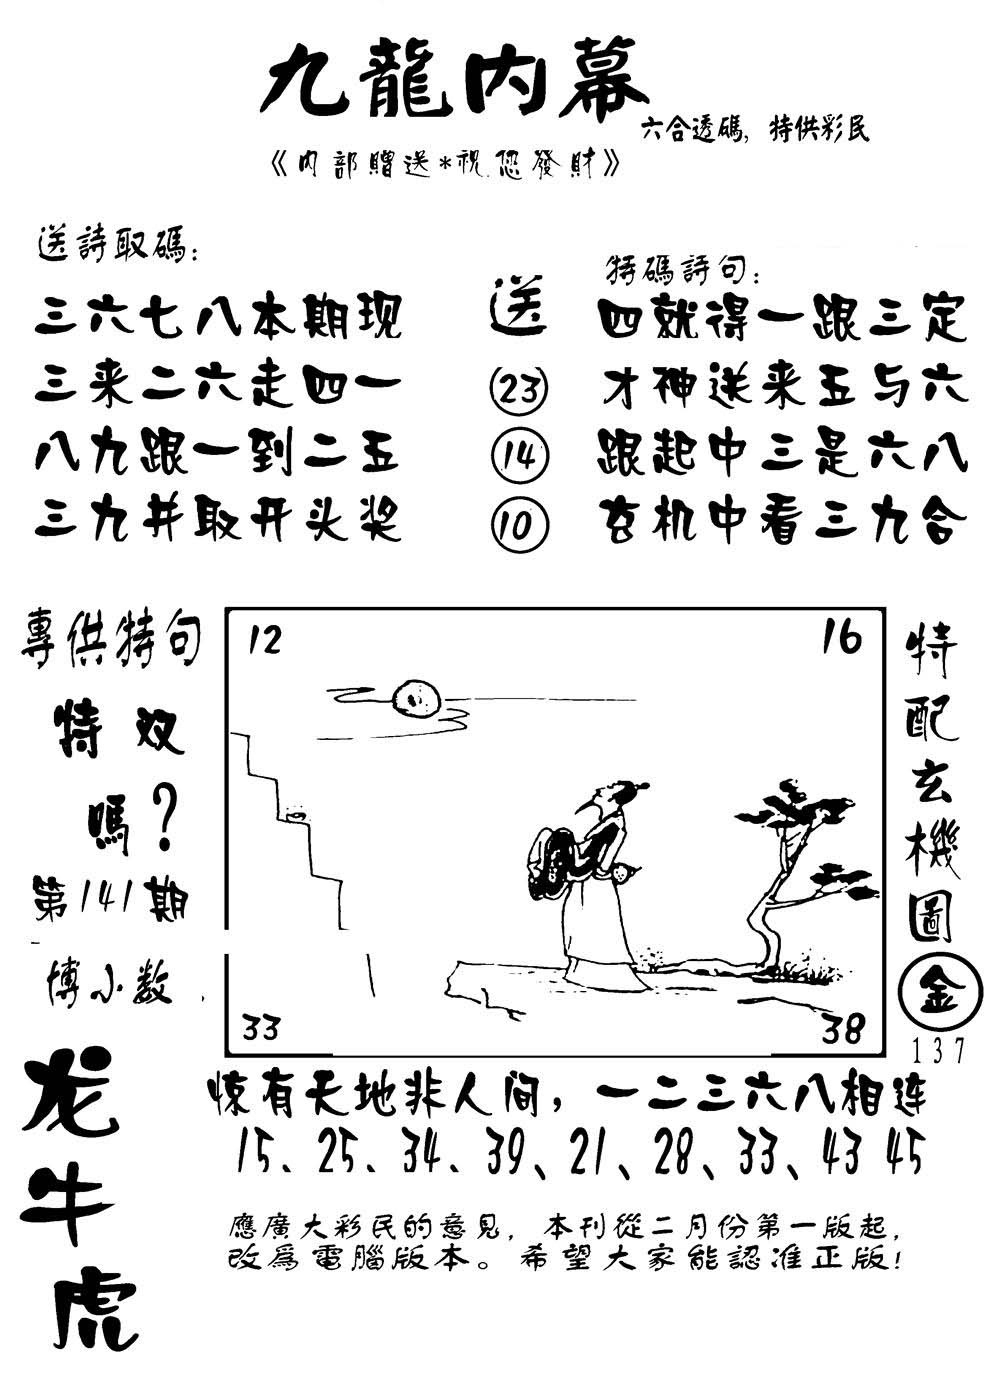 九龍内幕
六合透碼，特供彩民
《内部贈送*祝您發財》
送詩取碼：
三六七八本期现
三来二六走四一
八九跟一到二五
三九并取开头奖
送
23
14
10
特碼詩句：
四就得一跟三定
才神送来五与六
跟起中三是六八
玄机中看三九合
專供特句
特双
嗎？
第141期
博小数
龙
牛
虎
12
16
33
38
特配玄機圖
金
137
惊有天地非人间，一二三六八相连
15、25、34、39、21、28、33、43 45
應廣大彩民的意見，本刊從二月份第一版起，
改爲電腦版本。希望大家能認准正版！